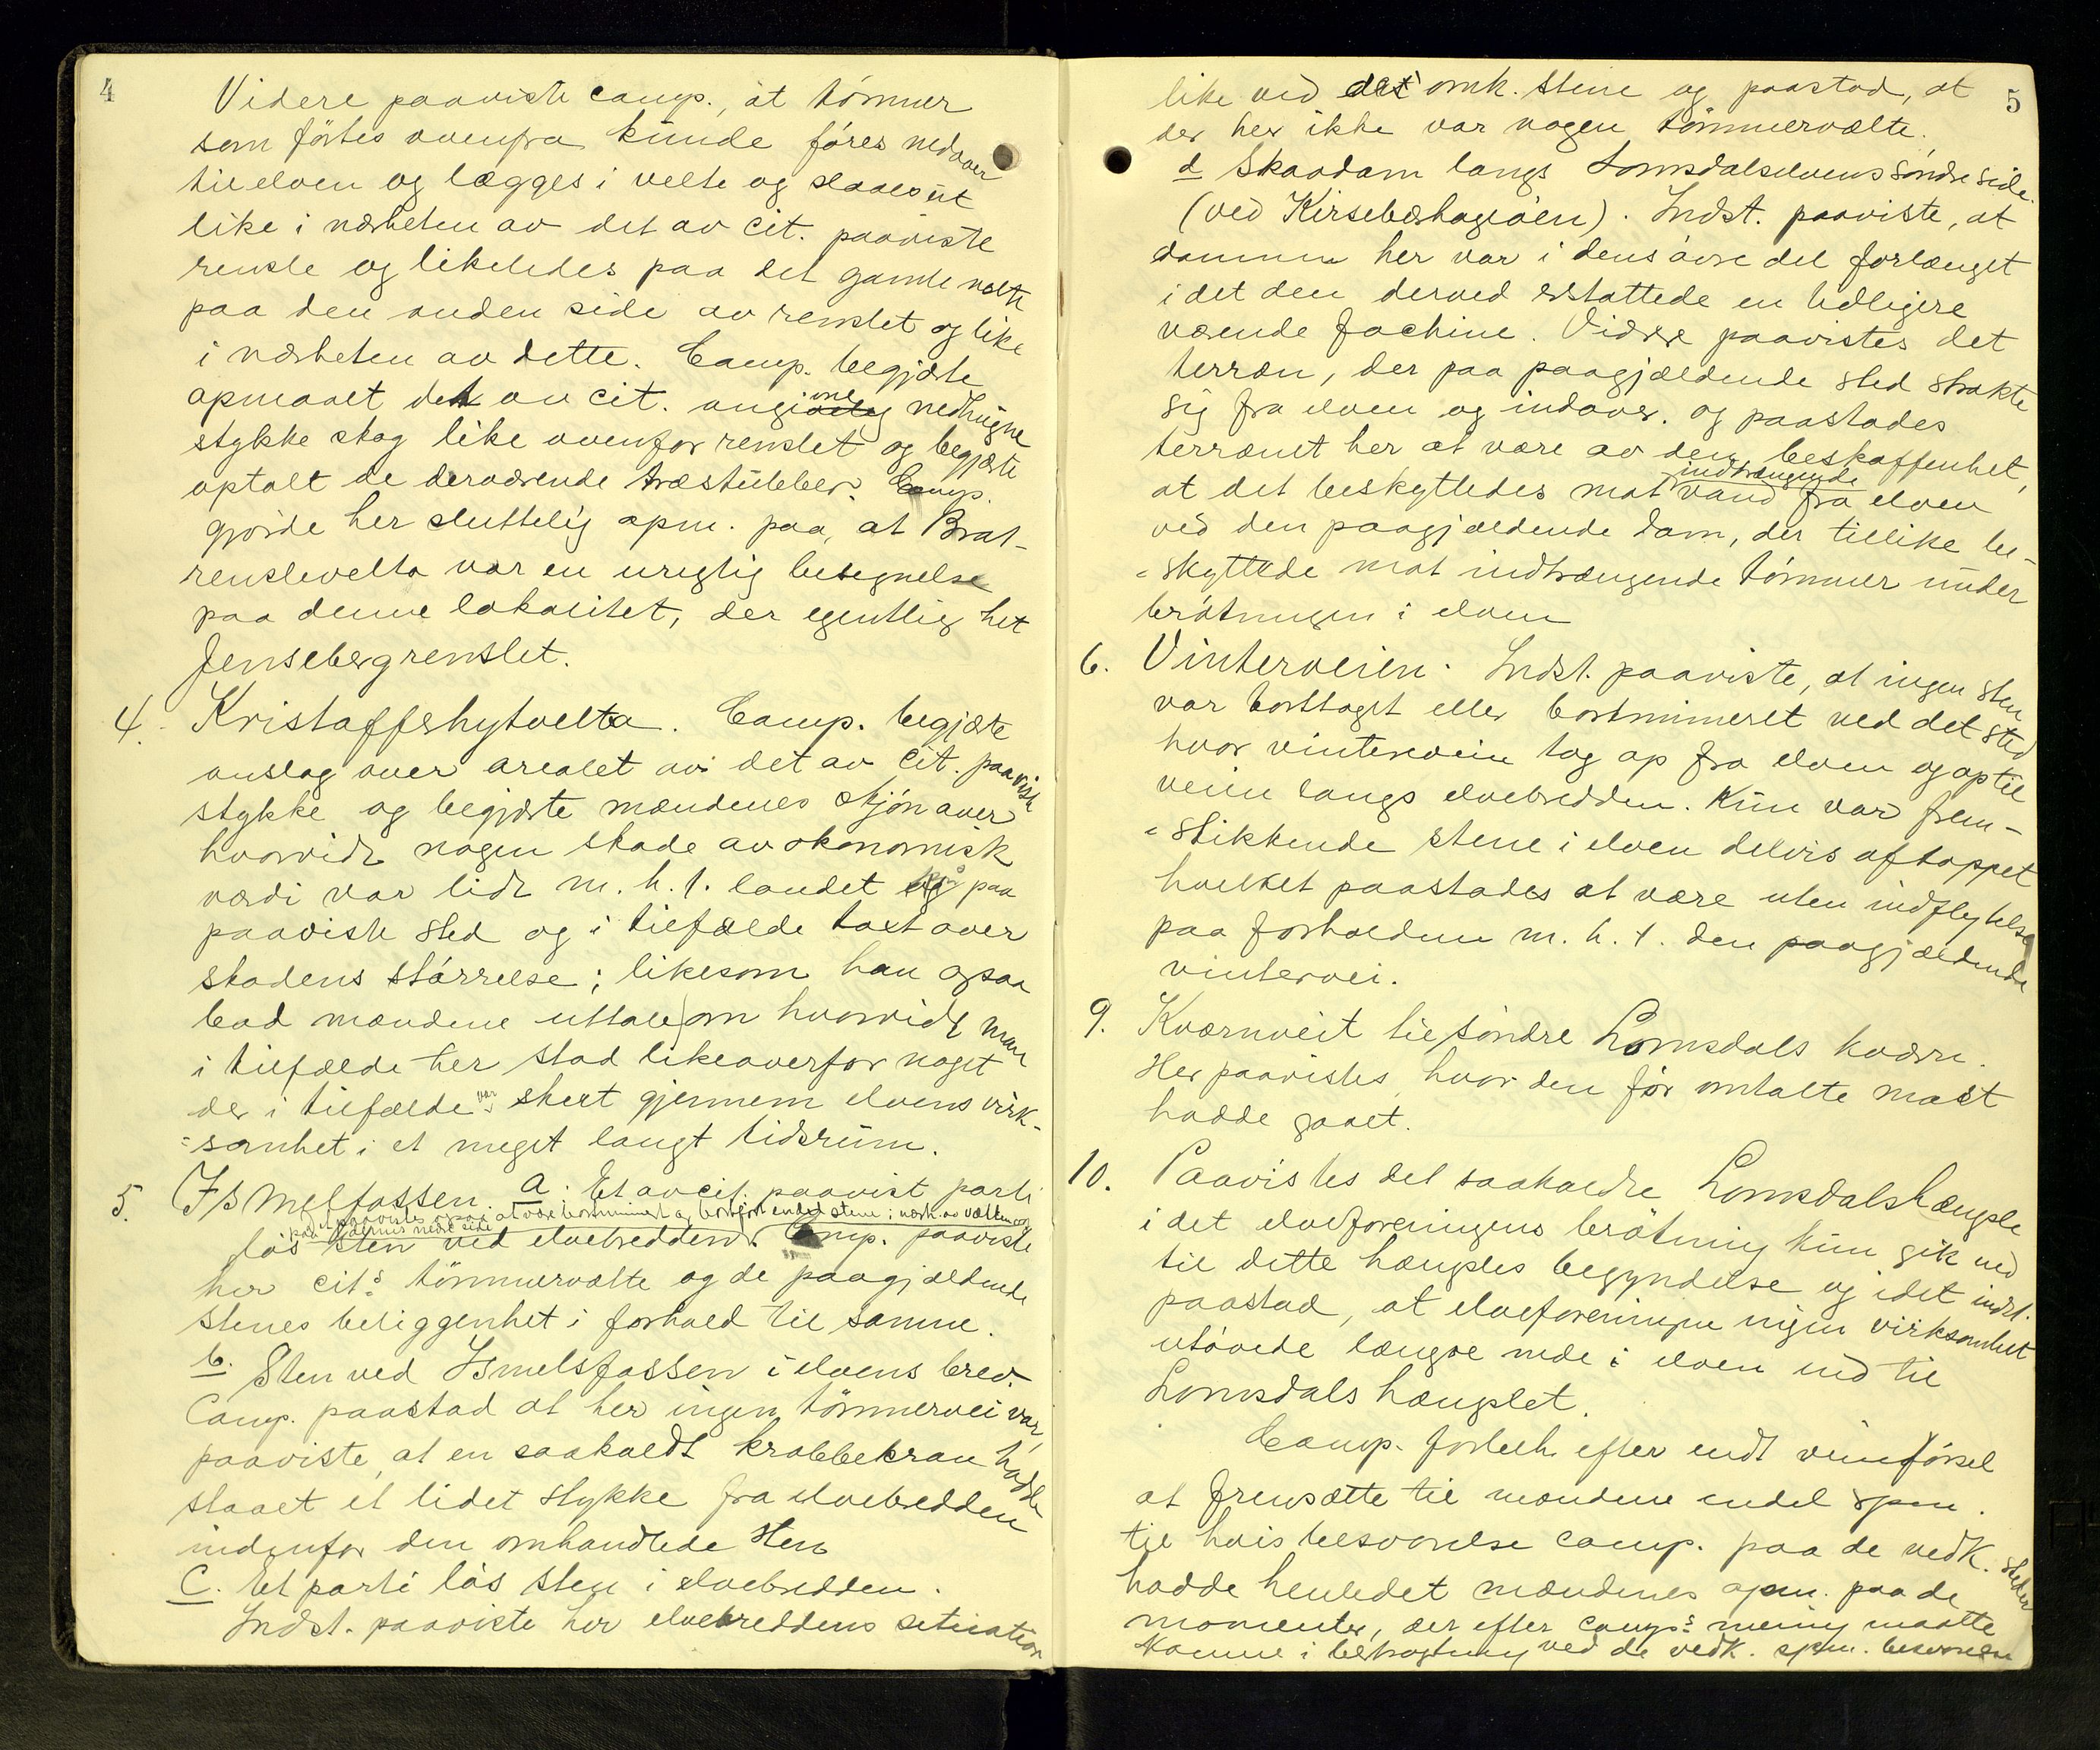 4
Videre paaviste comp., at tömmer
som förtes ovenfra kunde föres nedover
til elven og lægges i velte og slaaes ut
like i nærheten av det av cit. paaviste
rensle og likeledes paa det gamle velte
paa den anden side av renslet og like
i nærheten av dette. Comp. begjærte
opmaalt det av cit. angivne nedhugne
stykke skog like ovenfor renslet og begjærte
optalt de derværende træstubber. Comp.
gjorde her sluttelig opm. paa, at Brat-
renslevelta var en urigtig betegnelse
paa denne lokalitet, der egentlig het
Jensebergrenslet.
4. Kristoffehytvelta. Comp. begjærte
anslag over arealet av det av cit. paaviste
stykke og begjærte mændenes skjön over
hvorvidt nogen skade av ökonomisk
værdi var lidt m. h. t. landet paa
paaviste sted og i tilfælde taxt over
skadens störrelse; likesom han ogsaa
bad mændene uttale om hvorvidt man
i tilfælde her stod likeoverfor noget
der i tilfælde var skeet gjennem elvens virk-
=somhet i et meget langt tidsrum.
5. Ismelfossen. a. Et av cit. paavist parti
paa elvens nedre side
lös sten ved elvebredden. Comp. paaviste
her cit:s tömmervælte og de paagjældende
stenes beliggenhet i forhold til samme.
b. Sten ved Ismelsfossen i elvens bred.
Comp. paastod at her ingen tömmervei var,
paaviste, at en saakaldt krabbekran hadde
staaet et lidet stykke fra elvebredden
indenfor den omhandlede sten
c. Et parti lös sten i elvebredden.
Indst. paaviste her elvebreddens situation
5
like ved det omh. stene og paastod, at
der her ikke var nogen tömmervælte.
d Skaadam langs Lomsdalselvens söndre side
(ved Kirsebærhagaöen). Indst. paaviste, at
dammen her var i dens övre del forlænget
i det den derved erstattede en tidligere
værende fachine. Videre paavistes det
terræn, der paa paagjældende sted strakte
sig fra elven og indover. og paastodes
terrænet her at være av den beskaffenhet,
indtrængende
at det beskyttedes mot vand fra elven
ved den paagjældende dam, der tillike be-
=skyttede mot indtrængende tömmer under
brötningen i elven
6. Vinterveien. Indst. paaviste, at ingen sten
var borttaget eller bortmineret ved det sted
hvor vinterveien tog op fra elven og op til
veien langs elvebredden. Kun var frem-
=stikkende stene i elven delvis aftoppet
hvilket paastodes at være uten indflytelse
paa forholdene m. h. t. den paagjældende
vintervei.
9. Kværnveit til söndre Lomsdals kværn.
Her paavistes, hvor den för omtalte mast
hadde gaaet.
10. Paavistes det saakaldte Lomsdalshængsle
i det elveforeningens brötning kun gik ned
til dette hængsles begyndelse og idet indst.
paastod, at elveforeningen ingen virksomhet
utövede længre nede i elven end til
Lomsdals hængslet.
Comp. forbeh. efter endt vidneförsel
at fremsætte til mændene endel spm.
til hvis besvarelse comp. paa de vedk. steder
hadde henledet mændenes opm. paa de
momenter, der efter comp:s mening maatte
komme i betragtning ved de vedk. spm. besvarelse